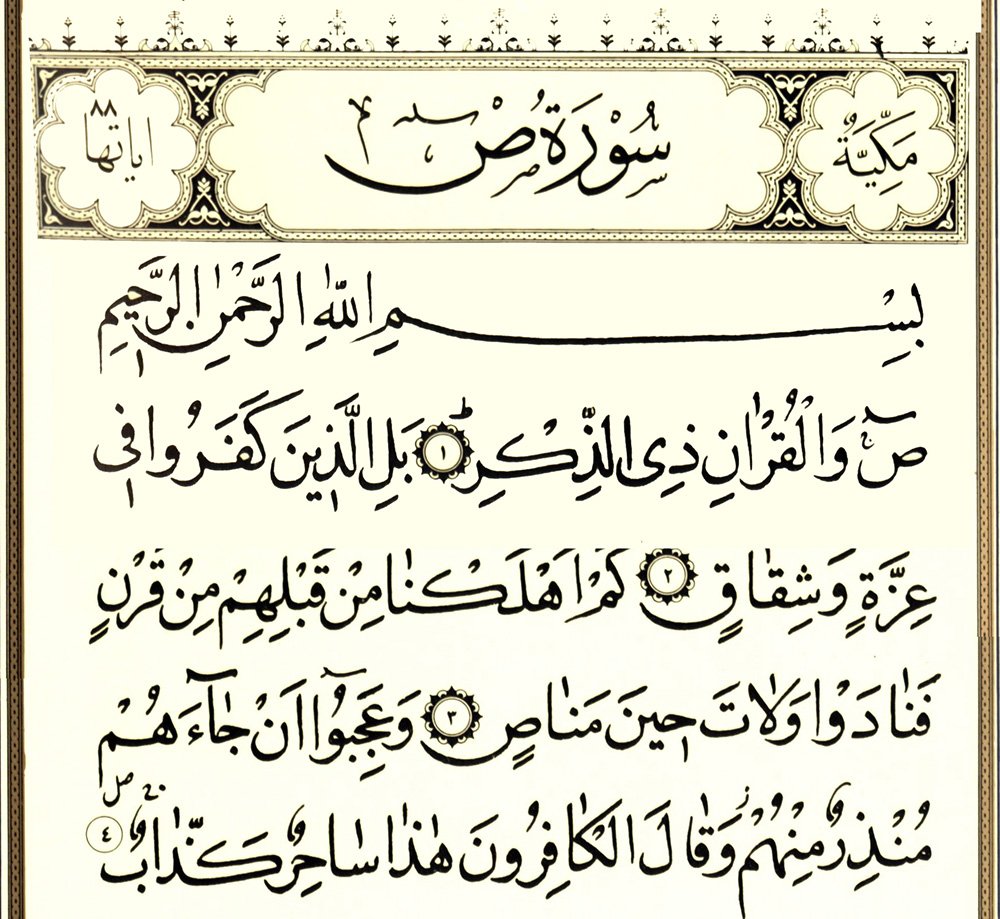 مَكِّيَّةٌ سُوْرَةُ صۤ اياتها ٨٨
بِسْمِ اللّٰهِ الرَّحْمٰنِ الرَّحٖيمِ
صۤ وَالْقُرْاٰنِ ذِى الذِّكْرِ ۜ ١ بَلِ الَّذٖينَ كَفَرُوا فٖى
عِزَّةٍ وَشِقَاقٍ ٢ كَمْ اَهْلَكْنَا مِنْ قَبْلِهِمْ مِنْ قَرْنٍ
فَنَادَوْا وَلَاتَ حٖينَ مَنَاصٍ ٣ وَعَجِبُٓوا اَنْ جَٓاءَهُمْ
مُنْذِرٌ مِنْهُمْ وَقَالَ الْكَافِرُونَ هٰذَا سَاحِرٌ كَذَّابٌ ٤